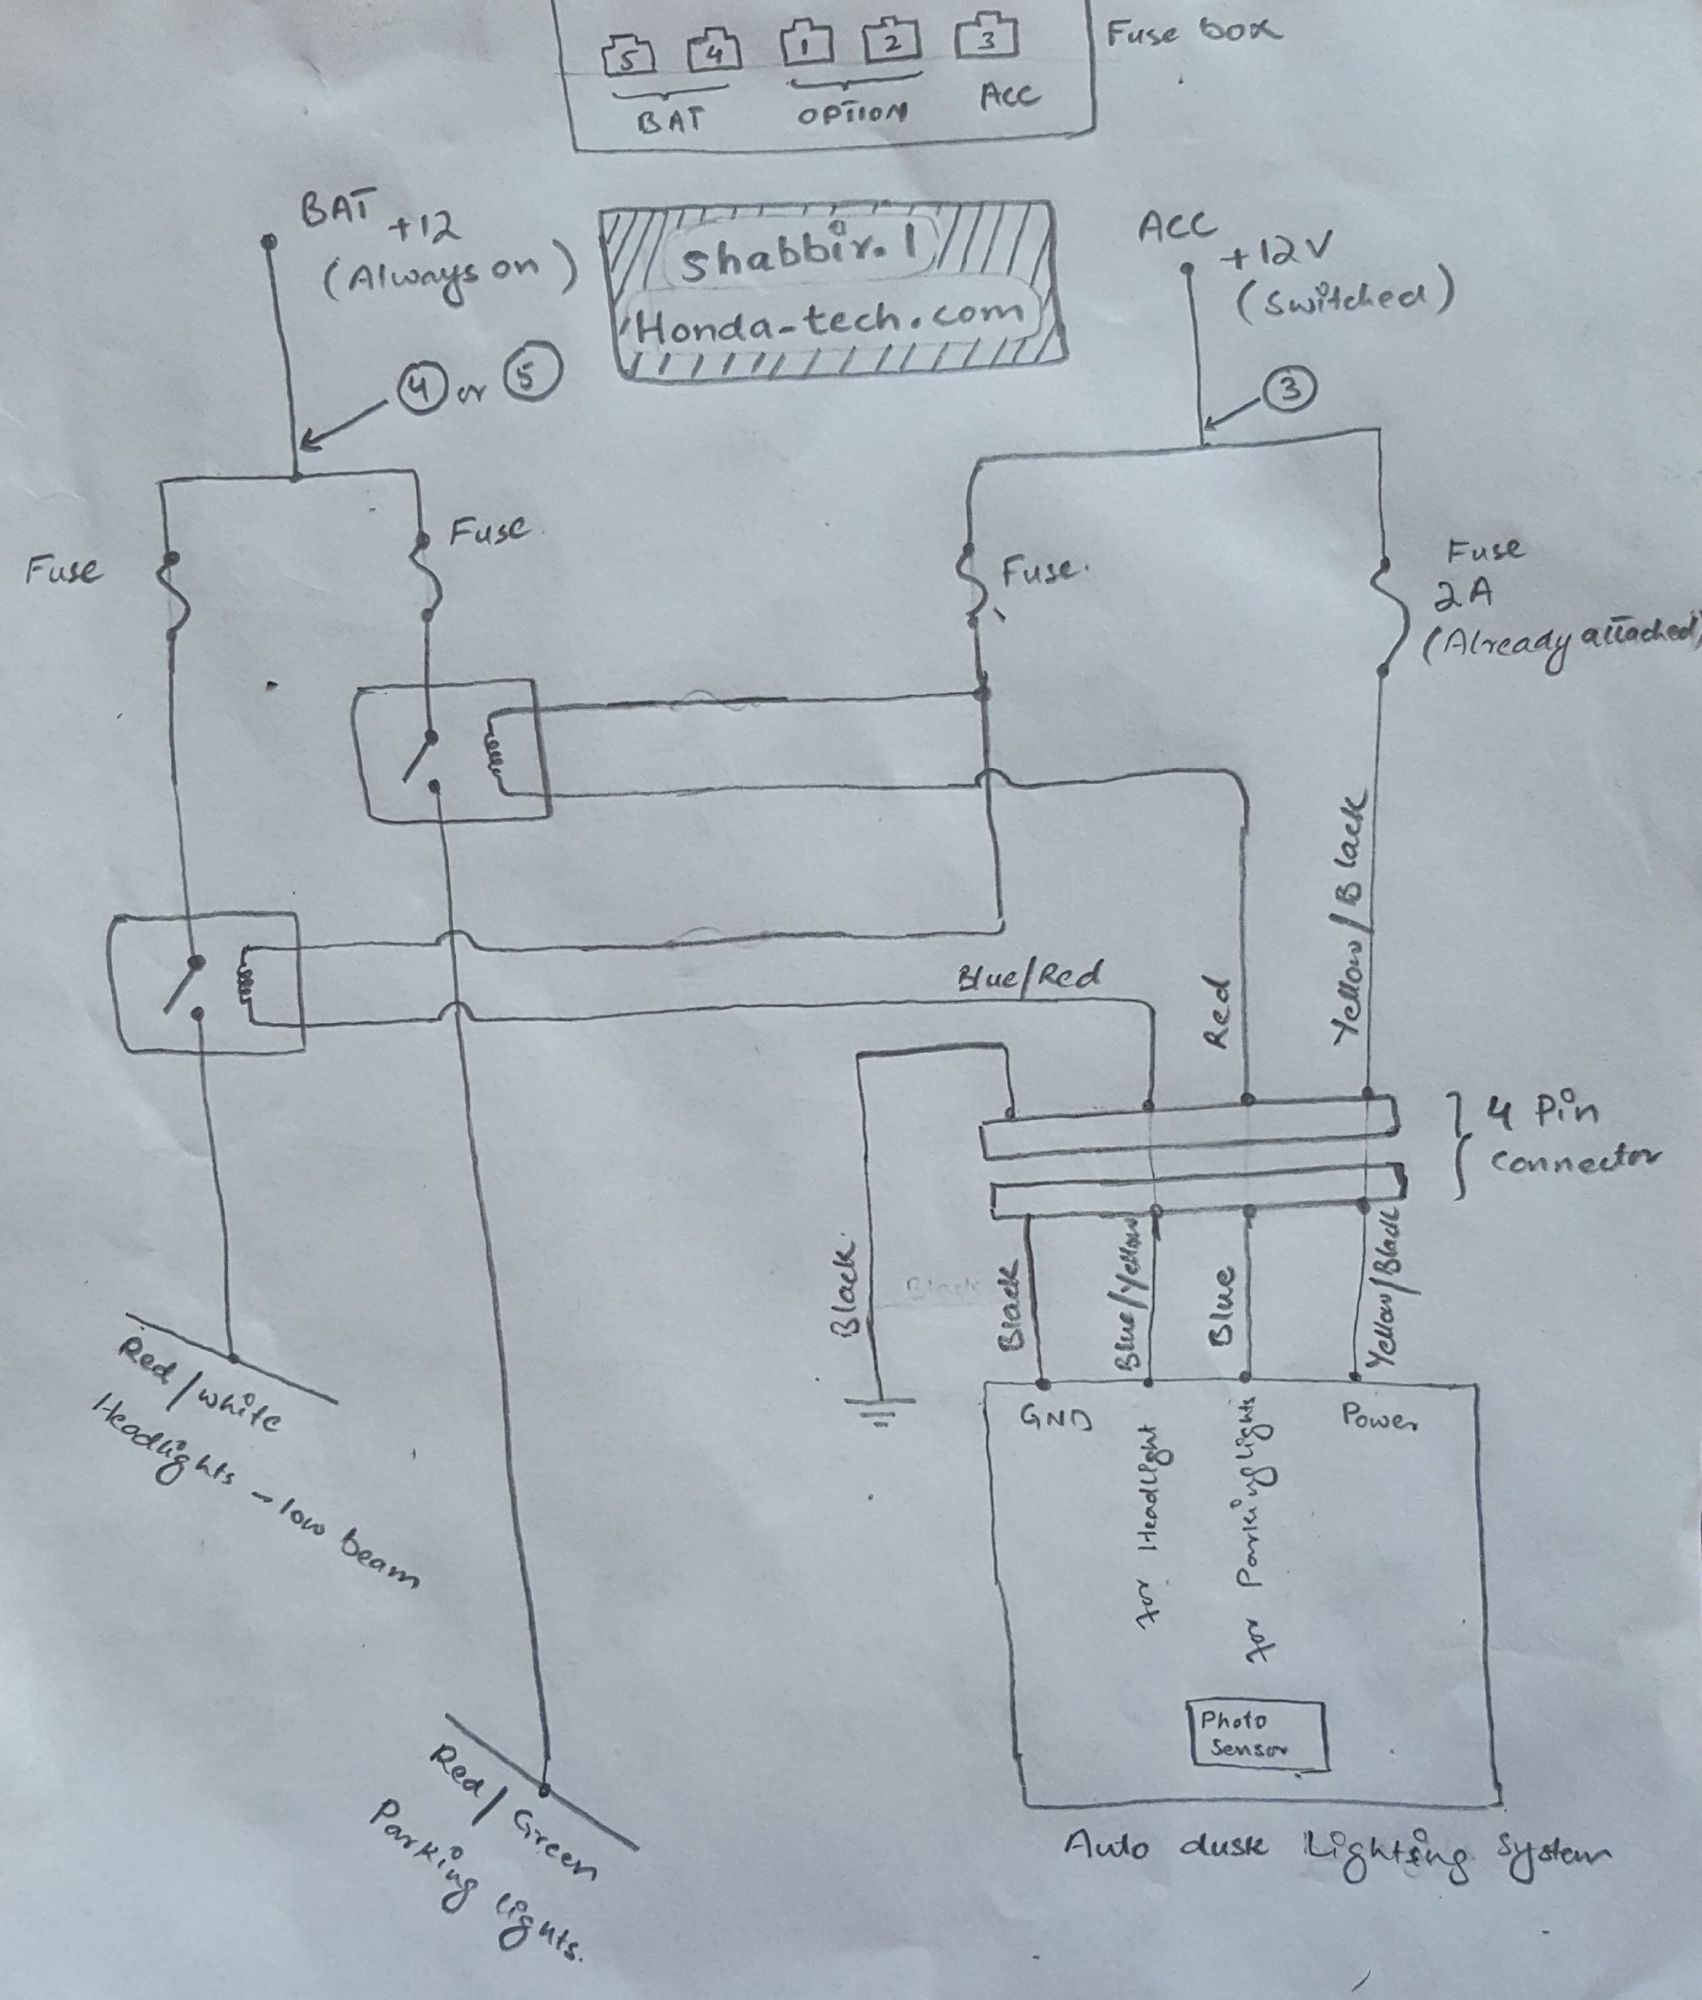 Fuse box
5 4 1 2 3
BAT OPTION ACC
BAT +12
(Always on)
shabbir.1
Honda-tech.com
ACC
+12V
(Switched)
4 or 5
3
Fuse
Fuse
Fuse.
Fuse
2A
(Already attached)
Yellow/Black
Blue/Red
Red
4 Pin
connector
Black
Black
Blue/Yellow
Blue
Yellow/Black
Black
GND
for Headlight
for Parking Lights
Power
Red/white
Headlights - low beam
Red/Green
Parking lights.
Photo
Sensor
Auto dusk Lighting System